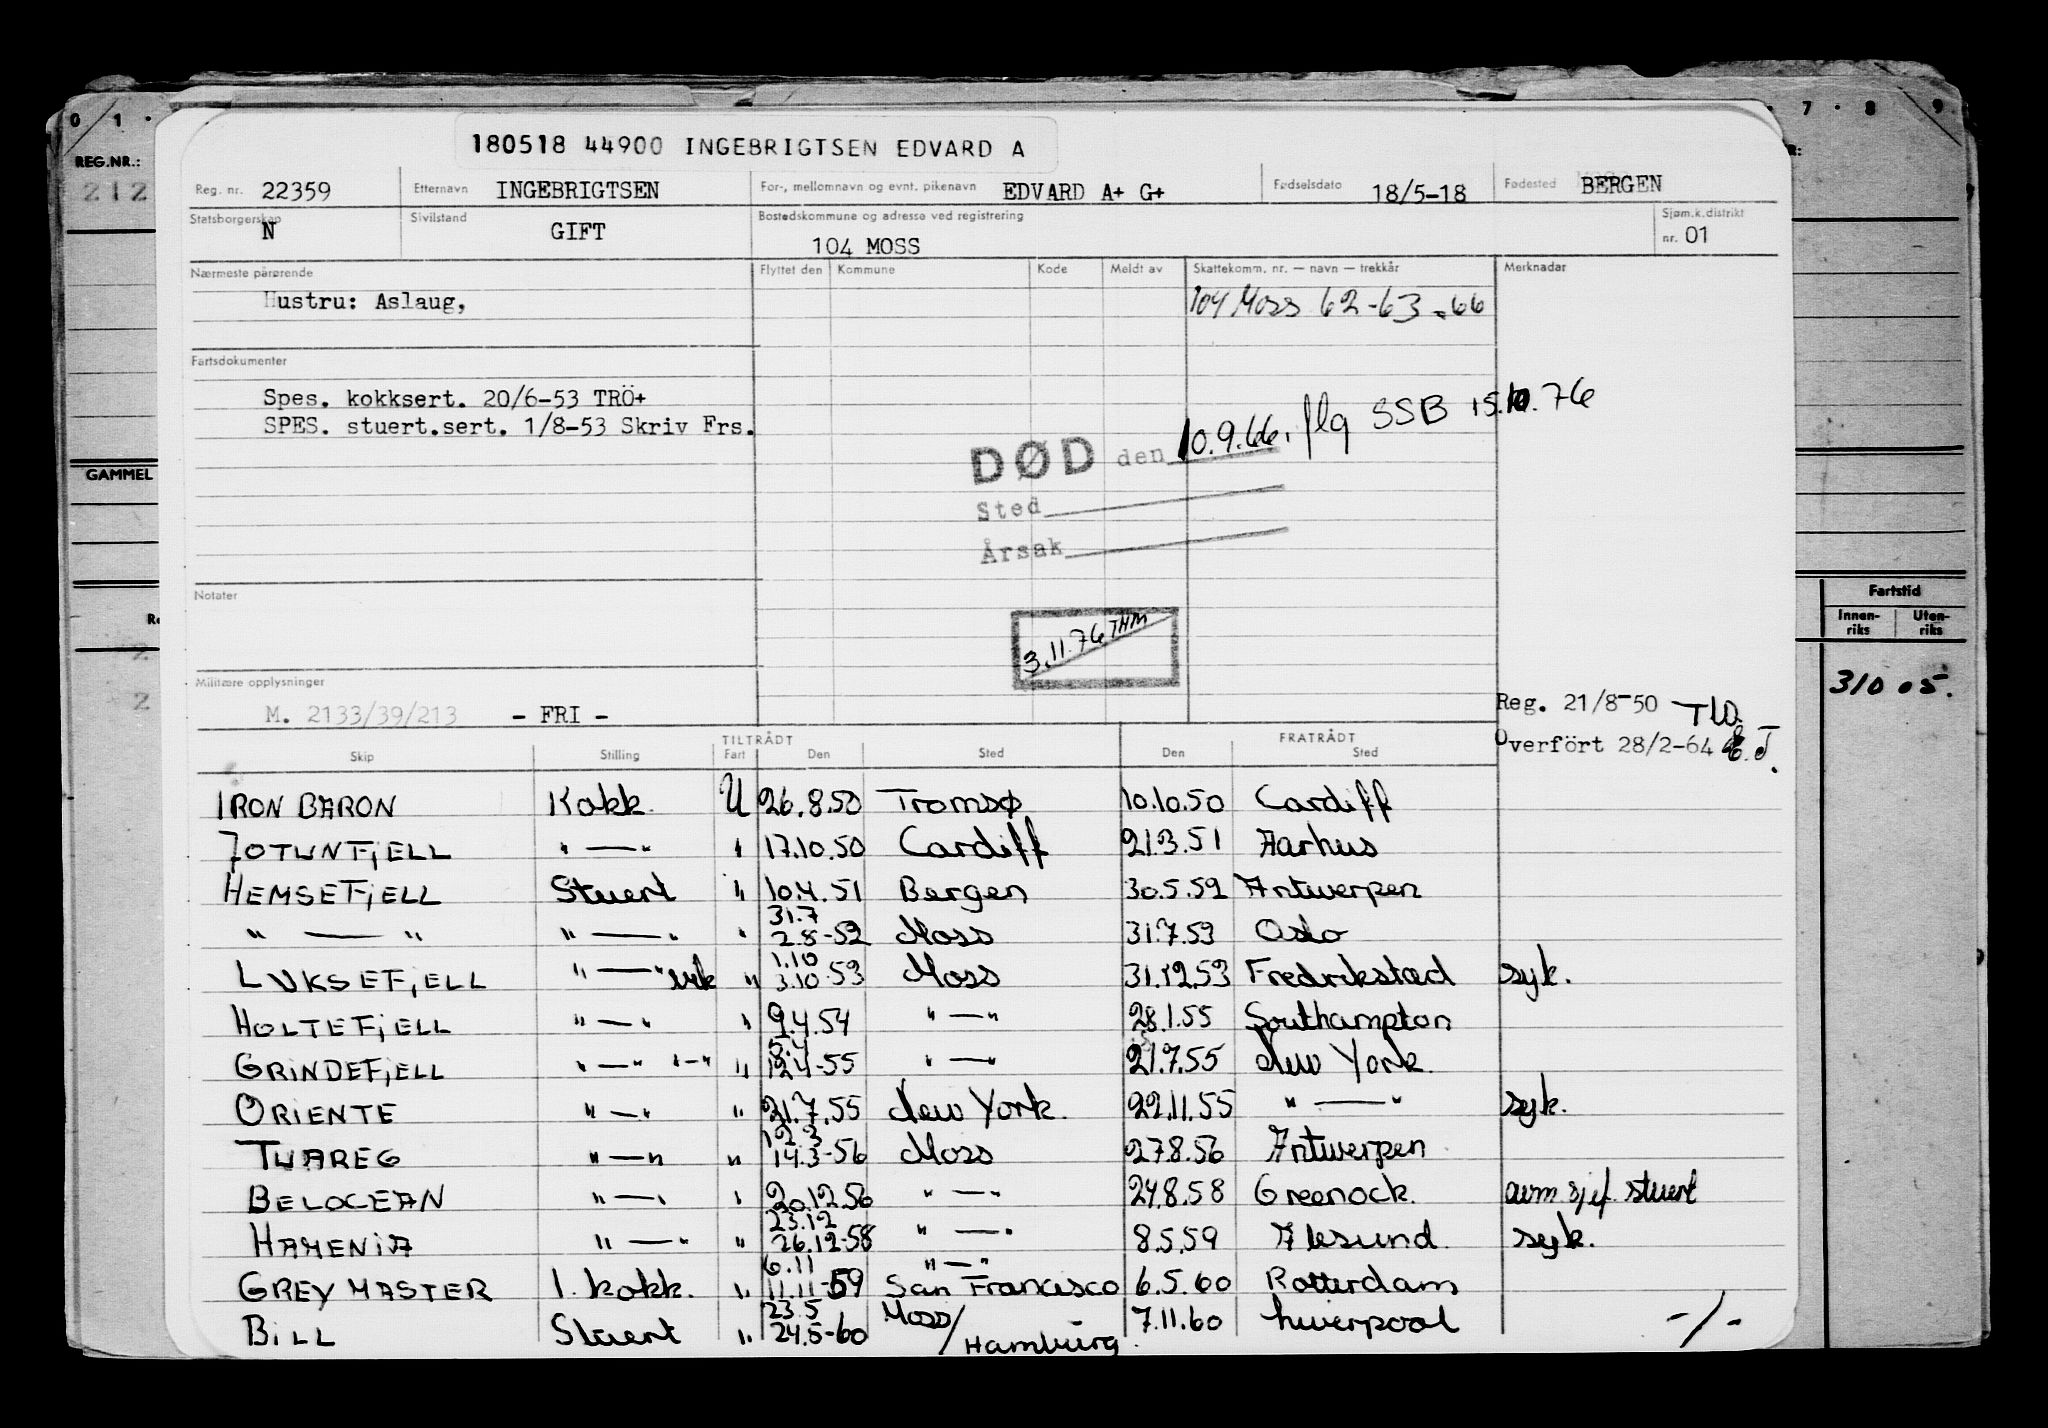 0 1 . 7 . 8 9.
180518 44900 INGEBRIGTSEN EDVARD A
REG.NR.:
212
Reg. nr. 22359 Etternavn INGEBRIGTSEN For-, mellomnavn og evnt. pikenavn EDVARD A+ G+ Fødselsdato 18/5-18 Fødested BERGEN
Statsborgerskap N Sivilstand GIFT Bostedskommune og adresse ved registrering 104 MOSS Sjøm.k.distrikt nr. 01
Nærmeste pårørende Flyttet den Kommune Kode Meldt av Skattekomm. nr. — navn — trekkår Merknader
Hustru: Aslaug, 104 Moss 62-63-66
Fartsdokumenter
Spes. kokksert. 20/6-53 TRÖ+
SPES. stuert.sert. 1/8-53 Skriv Frs.
DØD den 10.9.66. flg SSB 15.10.76
Sted
Årsak
GAMMEL
Notater
3.11.76 THM
Fartstid
Innen-riks Uten-riks
310 05.
Militære opplysninger
M. 2133/39/213 - FRI -
Reg. 21/8-50
Overfört 28/2-64
TILTRÅDT FRATRÅDT
Skip Stilling Fart Den Sted Den Sted
IRON BARON Kokk. U 26.8.50 Tromsø 10.10.50 Cardiff
JOTUNFJELL " — " " 17.10.50 Cardiff 21.3.51 Aarhus
HEMSEFJELL Stuert " 10.4.51 Bergen 30.5.52 Antwerpen
31.7
" — " " — " " 2.8-52 Moss 31.7.53 Oslo
1.10
LUKSEFJELL " — " vik " 3.10-53 Moss 31.12.53 Fredrikstad syk.
HOLTEFJELL " — " " 9.4.54 " — " 28.1.55 Southampton
5.4
GRINDEFJELL " — " " — " " 12.4-55 " — " 21.7.55 New York.
ORIENTE " — " " 21.7.55 New York. 22.11.55 " — " syk.
12.3
TUAREG " — " " 14.3-56 Moss 27.8.56 Antwerpen
BELOCEAN " — " " 20.12.56 " — " 24.8.58 Greenock. stuert
23.12
HAMENIA " — " " 26.12-58 " — " 8.5.59 Ålesund. syk.
6.11 " — "
GREY MASTER 1. kokk. " 11.11-59 San Francisco 6.5.60 Rotterdam
23.5
BILL Stuert " 24.5-60 Moss/Hamburg. 7.11.60 Liverpool -/-